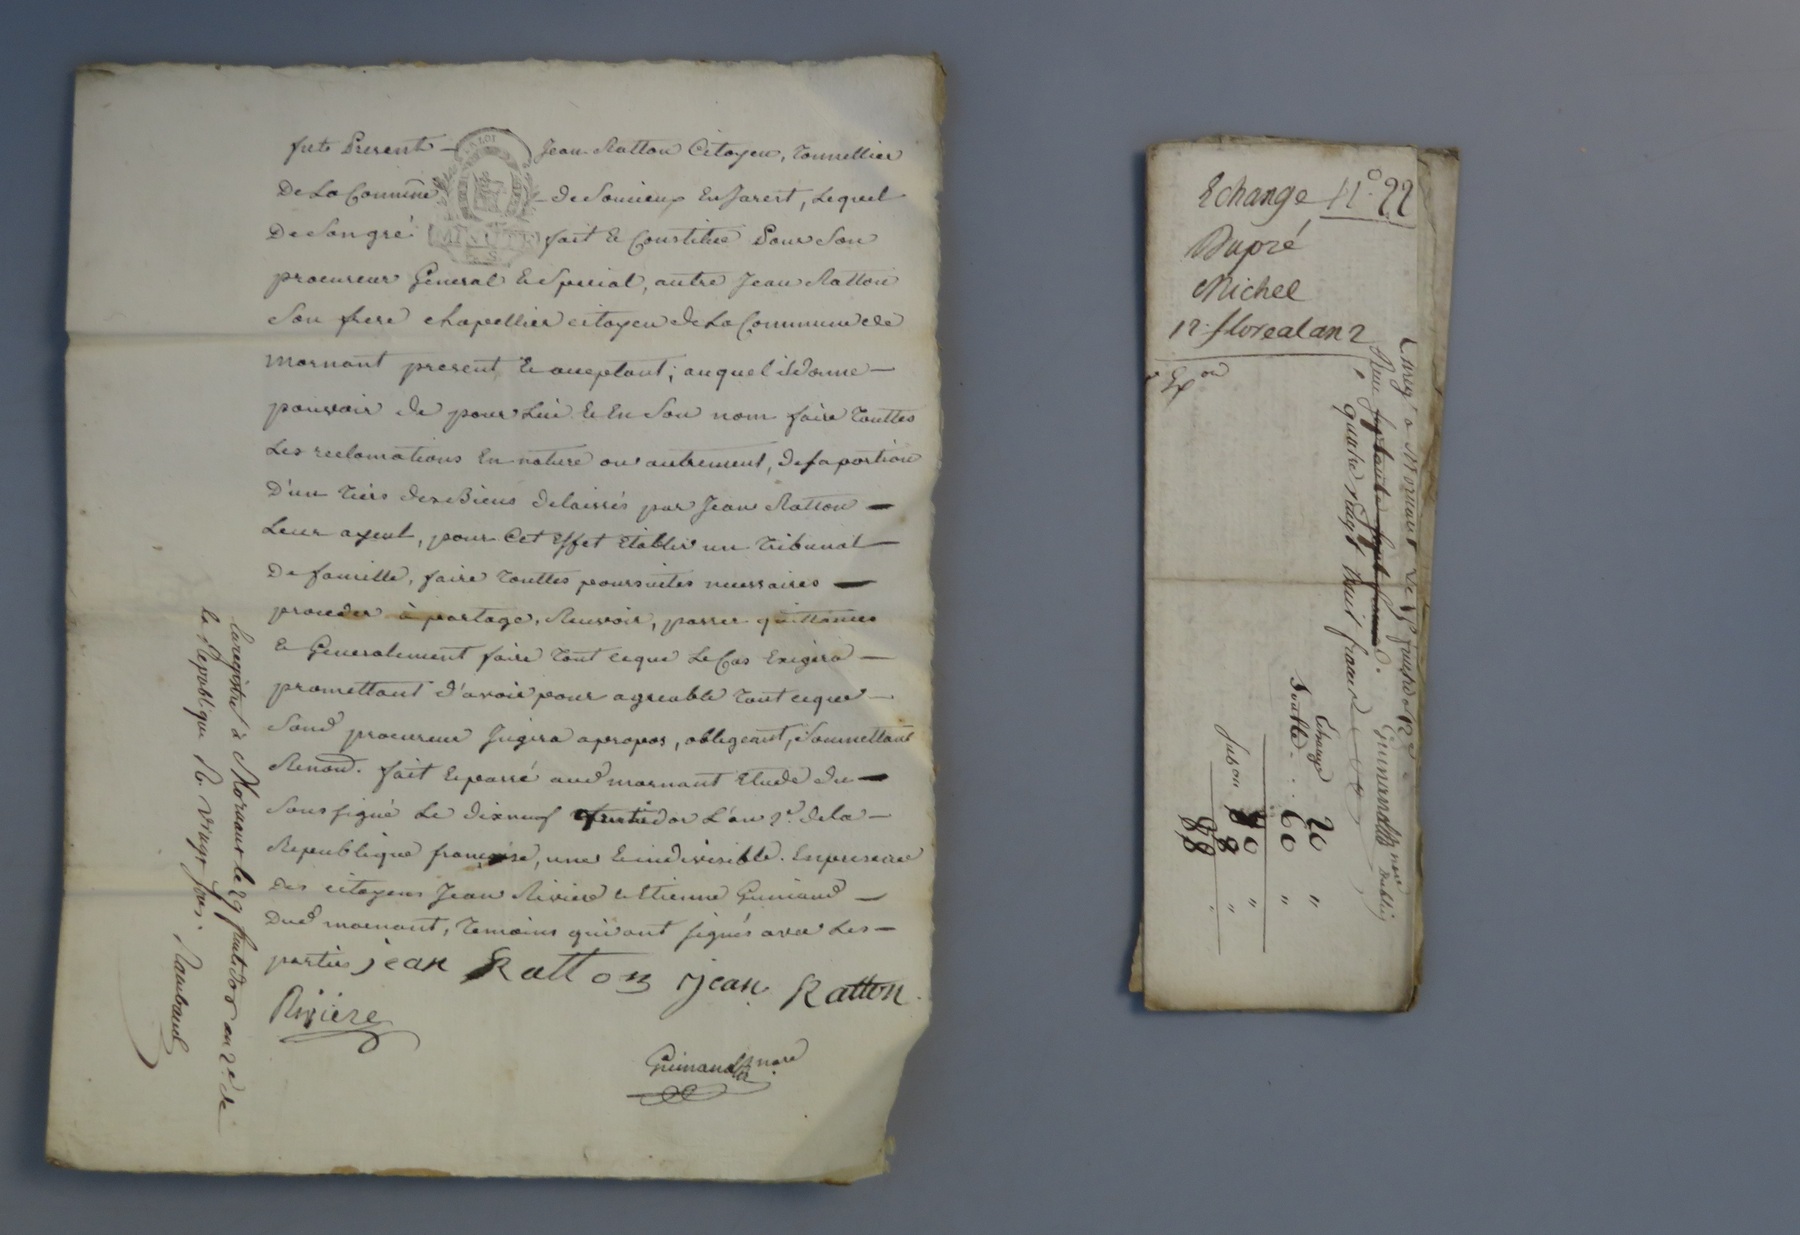 fut Present — Jean Ratton Citoyen, Tonnellier
De La Commune de Soucieux En Jarest, Lequel
De Son gré fait & Constitue Pour Son
procureur General & Special, autre Jean Ratton
Son frere chapellier citoyen de La Commune de
mornant present & acceptant; auquel il donne —
pouvoir de pour Lui & En Son nom faire Touttes
Les reclamations En nature ou autrement, de sa portion
D'un Tiers des Biens delaissés par Jean Ratton —
Leur ayeul, pour Cet Effet Etablir un Tribunal —
De famille, faire Touttes poursuites necessaires —
proceder à partage, Recevoir, passer quittances
& Generalement faire Tout ceque Le Cas Exigera —
promettant d'avoir pour agreable Tout ceque —
Sond procureur Jugera apropos, obligeant, Soumettant
Renonc. fait & passé aud mornant Etude du —
Soussigné Le dixneuf fructidor L'an 2e. de la —
Republique française, une & indivisible. En presence
des citoyens Jean Riviere & Etienne Guinand —
Dud mornant, Temoins qui ont signés avec Les —
parties jean Ratton jean Ratton
Rivière
Guinand nore
Enregistré à Mornant le 29 fructidor an 2e. de
la Republique R. vingt sous.
MINUTE
LA LOI
Echange N.º 22
Dupré
Michel
12. floreal an 2
Exon
Enregé a Mornant Le
quatre vingt huit francs
Guinand nore public
Echange 20 "
Soulte . . 60 "
80 "
8 "
88 .